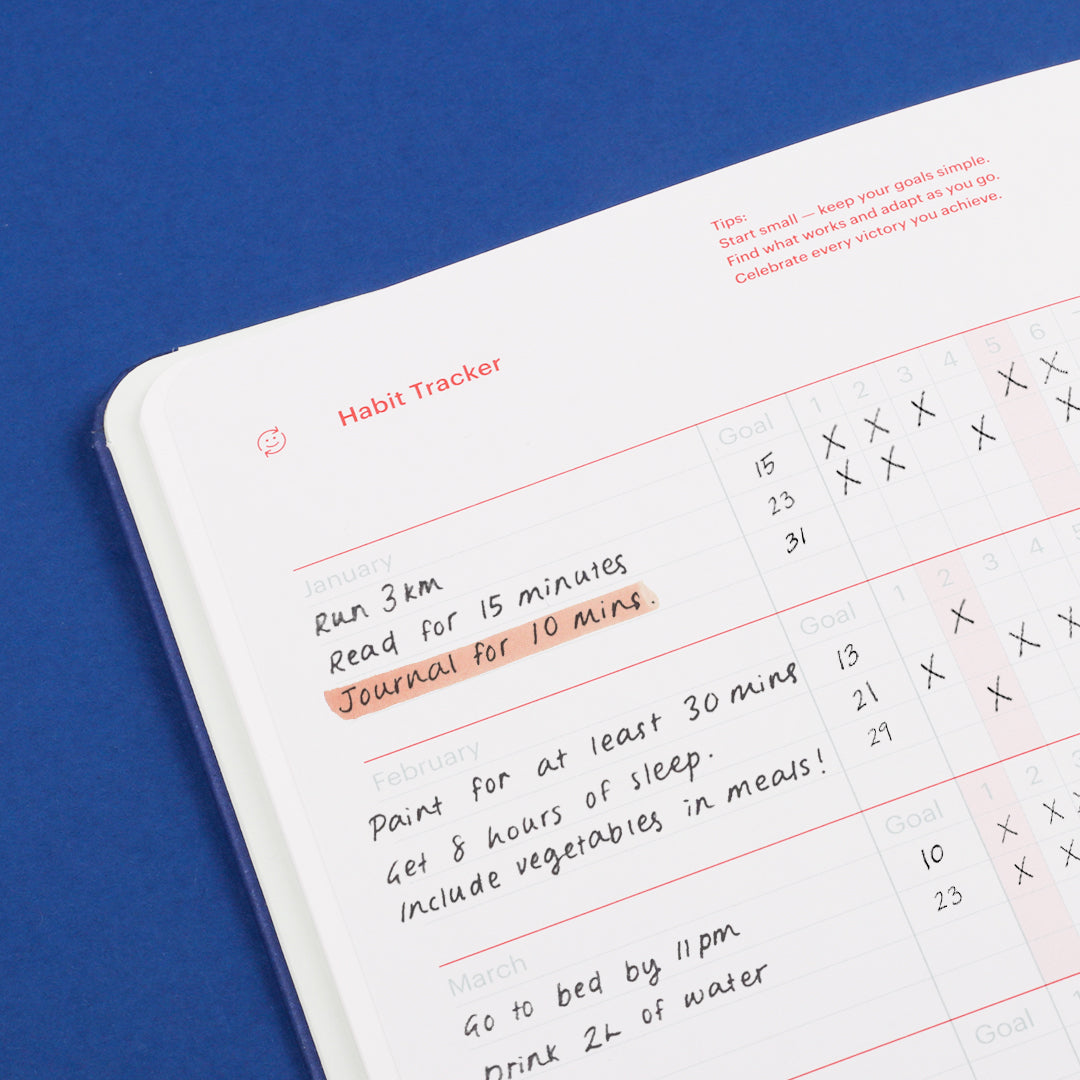 Tips:
Start small — keep your goals simple.
Find what works and adapt as you go.
Celebrate every victory you achieve.
Habit Tracker
January Goal 1 2 3 4 5 6 7
Run 3km 15 X X X X X
Read for 15 minutes 23 X X X X
Journal for 10 mins. 31
February Goal 1 2 3 4 5
Paint for at least 30 mins 13 X X X
Get 8 hours of sleep. 21 X X
Include vegetables in meals! 29
March Goal 1 2 3
Go to bed by 11pm 10 X X X
Drink 2L of water 23 X X
Goal 1